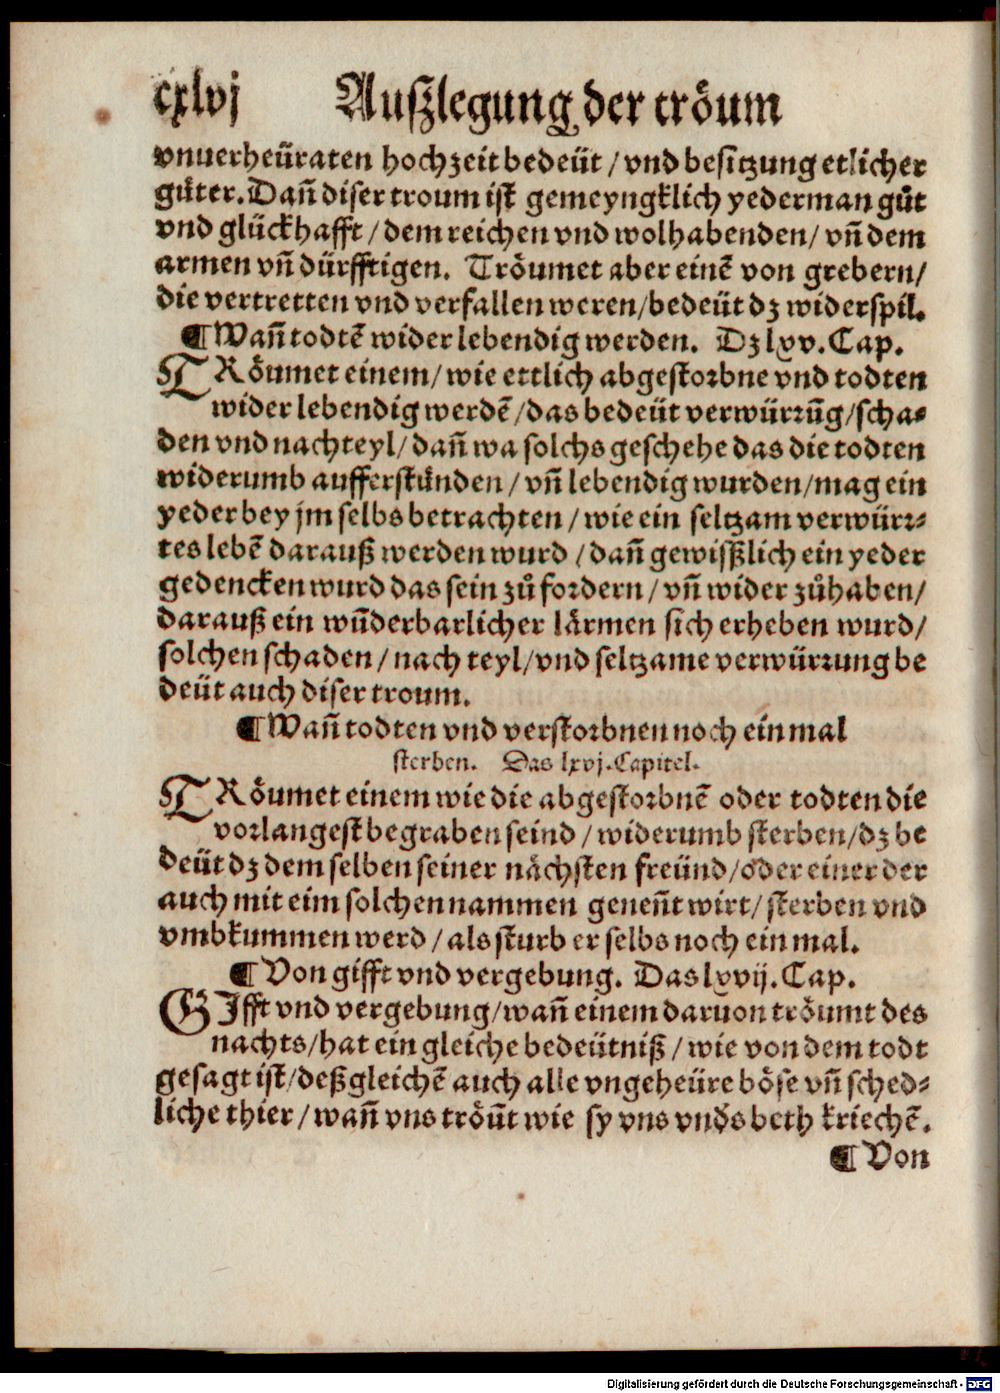 cxlvj Außlegung der tröum
vnuerheüraten hochzeit bedeüt / vnd besitzung etlicher
gůter. Dañ diser troum ist gemeyngklich yederman gůt
vnd glückhafft / dem reichen vnd wolhabenden / vñ dem
armen vñ dürfftigen. Tröumet aber einẽ von grebern /
die vertretten vnd verfallen weren / bedeüt dz widerspil.
¶ Wañ todtẽ wider lebendig werden. Dz lxv. Cap.
TRöumet einem / wie ettlich abgestorbne vnd todten
wider lebendig werdẽ / das bedeüt verwürrũg / scha⸗
den vnd nachteyl / dañ wa solchs geschehe das die todten
widerumb aufferstůnden / vñ lebendig wurden / mag ein
yeder bey jm selbs betrachten / wie ein seltzam verwürr⸗
tes lebẽ darauß werden wurd / dañ gewißlich ein yeder
gedencken wurd das sein zů fordern / vñ wider zůhaben /
darauß ein wũderbarlicher lärmen sich erheben wurd /
solchen schaden / nach teyl / vnd seltzame verwürrung be
deüt auch diser troum.
¶ Wañ todten vnd verstorbnen noch ein mal
sterben. Das lxvj. Capitel.
TRöumet einem wie die abgestorbnẽ oder todten die
vorlangest begraben seind / widerumb sterben / dz be
deüt dz dem selben seiner nächsten freünd / oder einer der
auch mit eim solchen nammen geneñt wirt / sterben vnd
vmbkummen werd / als sturb er selbs noch ein mal.
¶ Von gifft vnd vergebung. Das lxvij. Cap.
GIfft vnd vergebung / wañ einem daruon tröumt des
nachts / hat ein gleiche bedeütniß / wie von dem todt
gesagt ist / deßgleichẽ auch alle vngeheüre böse vñ sched⸗
liche thier / wañ vns tröũt wie sy vns vnďs beth kriechẽ.
¶ Von
Digitalisierung gefördert durch die Deutsche Forschungsgemeinschaft - DFG